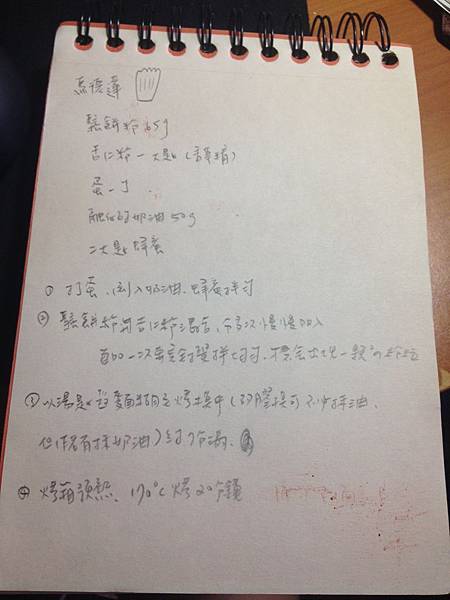 馬德蓮
鬆餅粉 65g
杏仁粉一大匙(
蛋一丁
融化的奶油 50g
二大匙蜂蜜
① 打蛋、加入奶油、蜂蜜拌勻
② 鬆餅粉與杏仁粉混合,分多次慢慢加入
每加一次要拌勻,不會出現一顆顆粉粒
③ 以湯匙 麵糊至烤模中(矽膠模可不必抹油,
但 有抹奶油)約7分滿。
④ 烤箱預熱、170°C 烤20分鐘